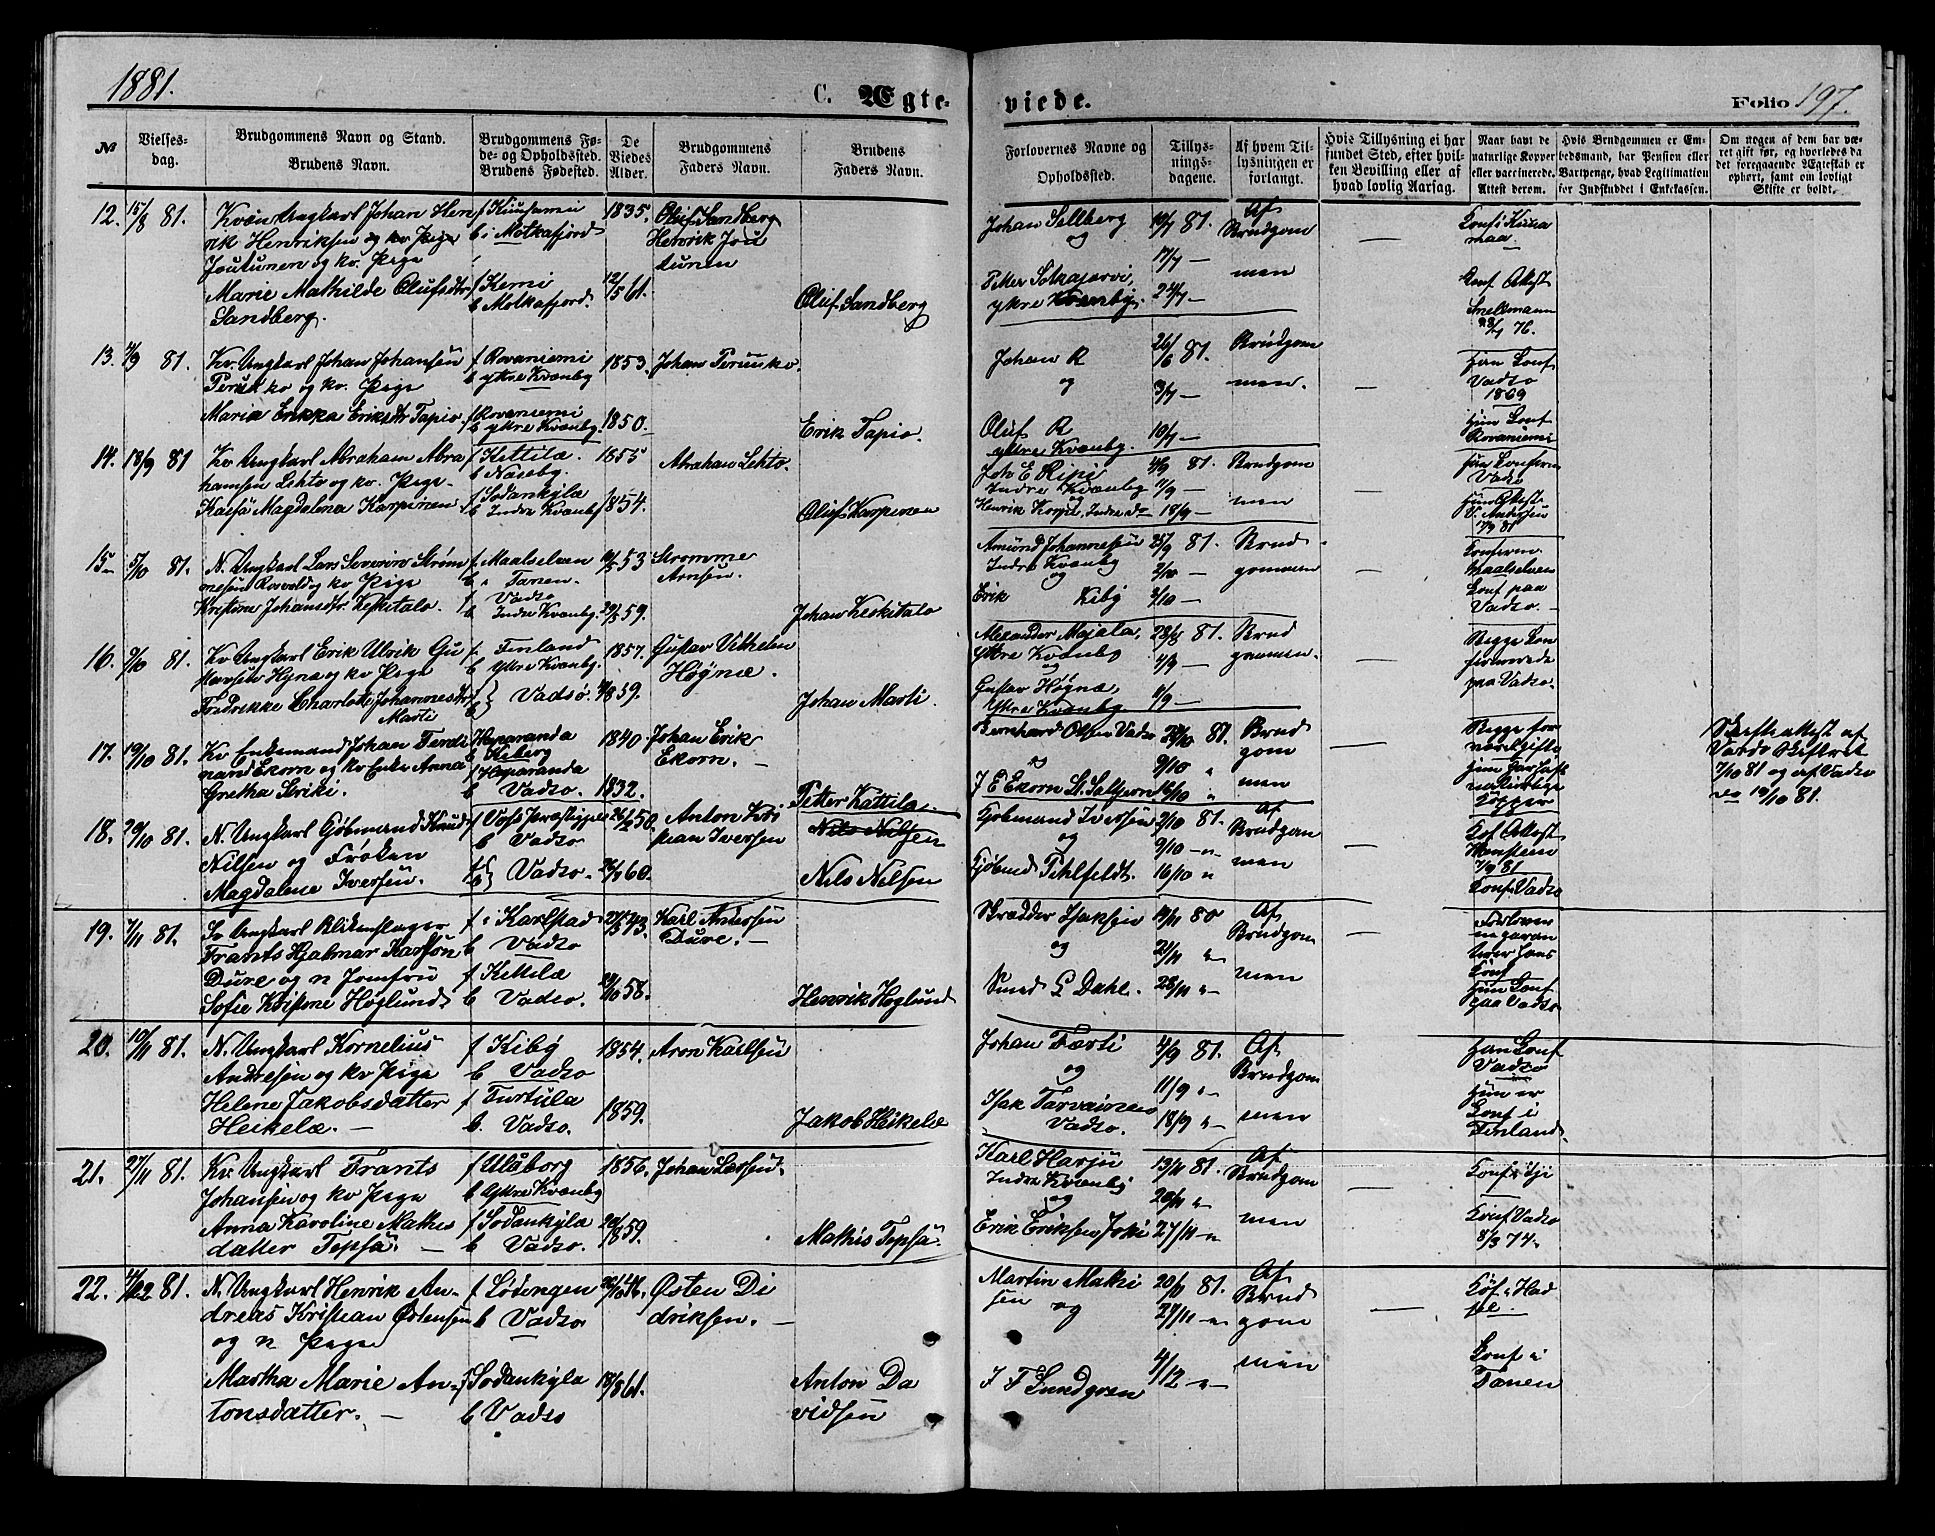 1881.
C. Ægte-
viede.
Folio 197.
№
Vielses-
dag.
Brudgommens Navn og Stand.
Brudens Navn.
Brudgommens Fø-
de- og Opholdssted.
Brudens Fødested.
De
Viedes
Alder.
Brudgommens
Faders Navn.
Brudens
Faders Navn.
Forlovernes Navne og
Opholdssted.
Tillys-
nings-
dagene.
Af hvem Til-
lysningen er
forlangt.
Hvis Tillysning ei har
fundet Sted, efter hvil-
ken Bevilling eller af
hvad lovlig Aarsag.
Naar havt de
naturlige Kopper
eller vaccinerede.
Attest derom.
Hvis Brudgommen er Em-
bedsmand, har Pension eller
Vartpenge, hvad Legitimation
for Indskuddet i Enkekassen.
Om nogen af dem har væ-
ret gift før, og hvorledes da
det foregaaende Ægteskab er
ophørt, samt om lovligt
Skifte er holdt.
12. 15/8 81.
Kvæn Ungkarl Johan Hen
rik Henriksen og kv Pige
Joutunen og kv. Pige
Marie Mathilde Olufsdtr
Sandberg.
f Kuusamo
b i Motkafjord
f Kemi
b Motkafjord
1835.
12/5 61.
Oluf Sandberg
Henrik Jou
tunen
Oluf Sandberg
Johan Sellberg
og
Petter Sotkajærvi,
ytre Kvænby.
10/7 81.
17/7 —
24/7 —
Af
Brudgom
men
—
Conf i Kuusa
maa
Conf Attest
Snellmann
23/7 76.
13. 4/9 81.
Kv. Ungkarl Johan Johansen
Perukko og kv. Pige
Maria Erikka Eriksdtr Tapio
f Rovaniemi
b ytre Kvænby
f Rovaniemi
b ytre Kvænby.
1853.
1850.
Johan Perukko.
Erik Tapio.
Johan R
og
Oluf R
ytre Kvænby.
26/6 81.
3/7 —
10/7 —
Brudgom
men.
—
Han Conf
Vadsø
1869
Hun Conf
Rovaniemi
14. 18/9 81
Kv Ungkarl Abraham Abra
hamsen Lehto og kv. Pige
Kaisa Magdalena Karpinen
f Kittilæ.
b Næseby.
f Sodankylæ
b Indre Kvænby
1855
1854.
Abraham Lehto.
Oluf Karpinen
Joh E Ripi
Indre Kvænby
og
4/9 81.
7/9 —
18/9 —
Brudgom
men
—
Han Conferm
Vadsø
Hun Attest
V. Andersen
17/9 81
15 5/10 81.
N. Ungkarl Lars Severin Strøm
mesen Rosvold og kv Pige
Kristine Johansdtr. Keskitalo.
f Maalselven
b i Tanen.
f Vadsø
b Indre Kvænby.
Strømme
Arnsen.
Johan Keskitalo
Amund Johannesen
Indre Kvænby
og
Erik Kiby
25/9 81.
2/10 —
Brud
gommen
—
Conferm
Maalselven
Conf paa
Vadsø.
16. 9/10 81.
Kv Ungkarl Erik Ulrik Gu
stavsen Hyne og kv Pige
Fredrikke Charlotte Johannesdtr
Marti
f Finland
b Ytre Kvænby.
f
b } Vadsø
1857.
Gustav Vilhelm
Høgnæ.
Johan Marti.
Alexander Majala,
Ytre Kvænby
og
Gustav Høgnæ,
Ytre Kvænby.
28/8 81.
4/9 —
11/9 —
Brud
gommen.
—
Begge Con
firmerede
paa Vadsø.
17. 19/10 81.
Kv Enkemand Johan Ferdi
nand Ekorn og kv Enke Anna
Gretha Seriki.
f Haparanda
b Kiberg
f Haparanda
b Vadsø.
1840.
1832.
Johan Erik
Ekorn.
Petter Kattila.
Bernhard Olsen Vadsø
og
9/10 "
16/10 "
Brud
gom
men
—
Begge for
naturlige
Kopper
Skifteattest af
Vardø Skifteret
7/10 81 og af Vadsø
do 19/10 81.
18. 29/10 81.
N. Ungkarl Gjøbmand Knud
Nilsen og Frøken
Magdalene Iversen.
b Vadsø
f
b } Vadsø.
Anton Kri
stian Iversen
Nils Nilsen
Nils Nilsen
Gjøbmand Iversen
og
Gjøbmd Pehlfeldt.
2/10 81.
9/10 —
16/10 "
Af
Brudgom
men
—
Conf Attest
7/9 81
Conf Vadsø
19. 7/11 81.
Sv Ungkarl Blikenslager
Frants Hjalmar Karlson
Dure og n Jomfru
Sofie Kristine Høglund
f i Karlstad
b Vadsø
f Kittilæ
b Vadsø.
Karl Andersen
Dure.
Henrik Høglund
Skrædder Isaksen
og
Smed G Dahl.
14/11 80
21/11 "
28/11 "
Af
Brudgom
men
—
Forlover
ne garan
terer hans
Conf
Hun Conf
paa Vadsø
20. 10/11 81.
N. Ungkarl Kornelius
Andresen og kv Pige
Helene Jakobsdatter
Heikelæ.
f Kiby
b Vadsø
f Turtula
b. Vadsø.
1854.
1859.
Aron Karlsen
Jakob Heikelæ
Johan Færti
og
Isak Tarvainen
Vadsø.
4/9 81.
11/9 "
18/9 "
Af
Brudgom
men
Han Conf
Vadsø
Hun er
Conf i
Finland.
21. 27/11 81.
Kv. Ungkarl Frants
Johansen og kv Pige
Anna Karoline Mathis
datter Tepsa.
f Uleåborg
b Ytre Kvænby
f Sodankylæ
b Vadsø.
1856.
20/8 59.
Johan Larsen.
Mathis Tepsa.
Karl Harju
Indre Kvænby
og
Erik Eriksen Joki
13/11 81.
20/11 "
27/11 "
Af
Brudgom
men
—
Conf i Iji
Conf Vadsø
8/3 74.
22. 4/12 81.
N. Ungkarl Henrik An-
dreas Kristian Østensen
og n Pige
Martha Marie An-
tonsdatter.
f Lødingen
b Vadsø
f Sodankyla
b Vadsø
18/8 61.
Østen Di
driksen.
Anton Da
vidsen
Martin Mathi
sen
og
J F Sundgren
20/11 81.
27/11 "
4/12 "
Af
Brud
gom
men
—
Conf i Had
sel.
Conf i
Tanen